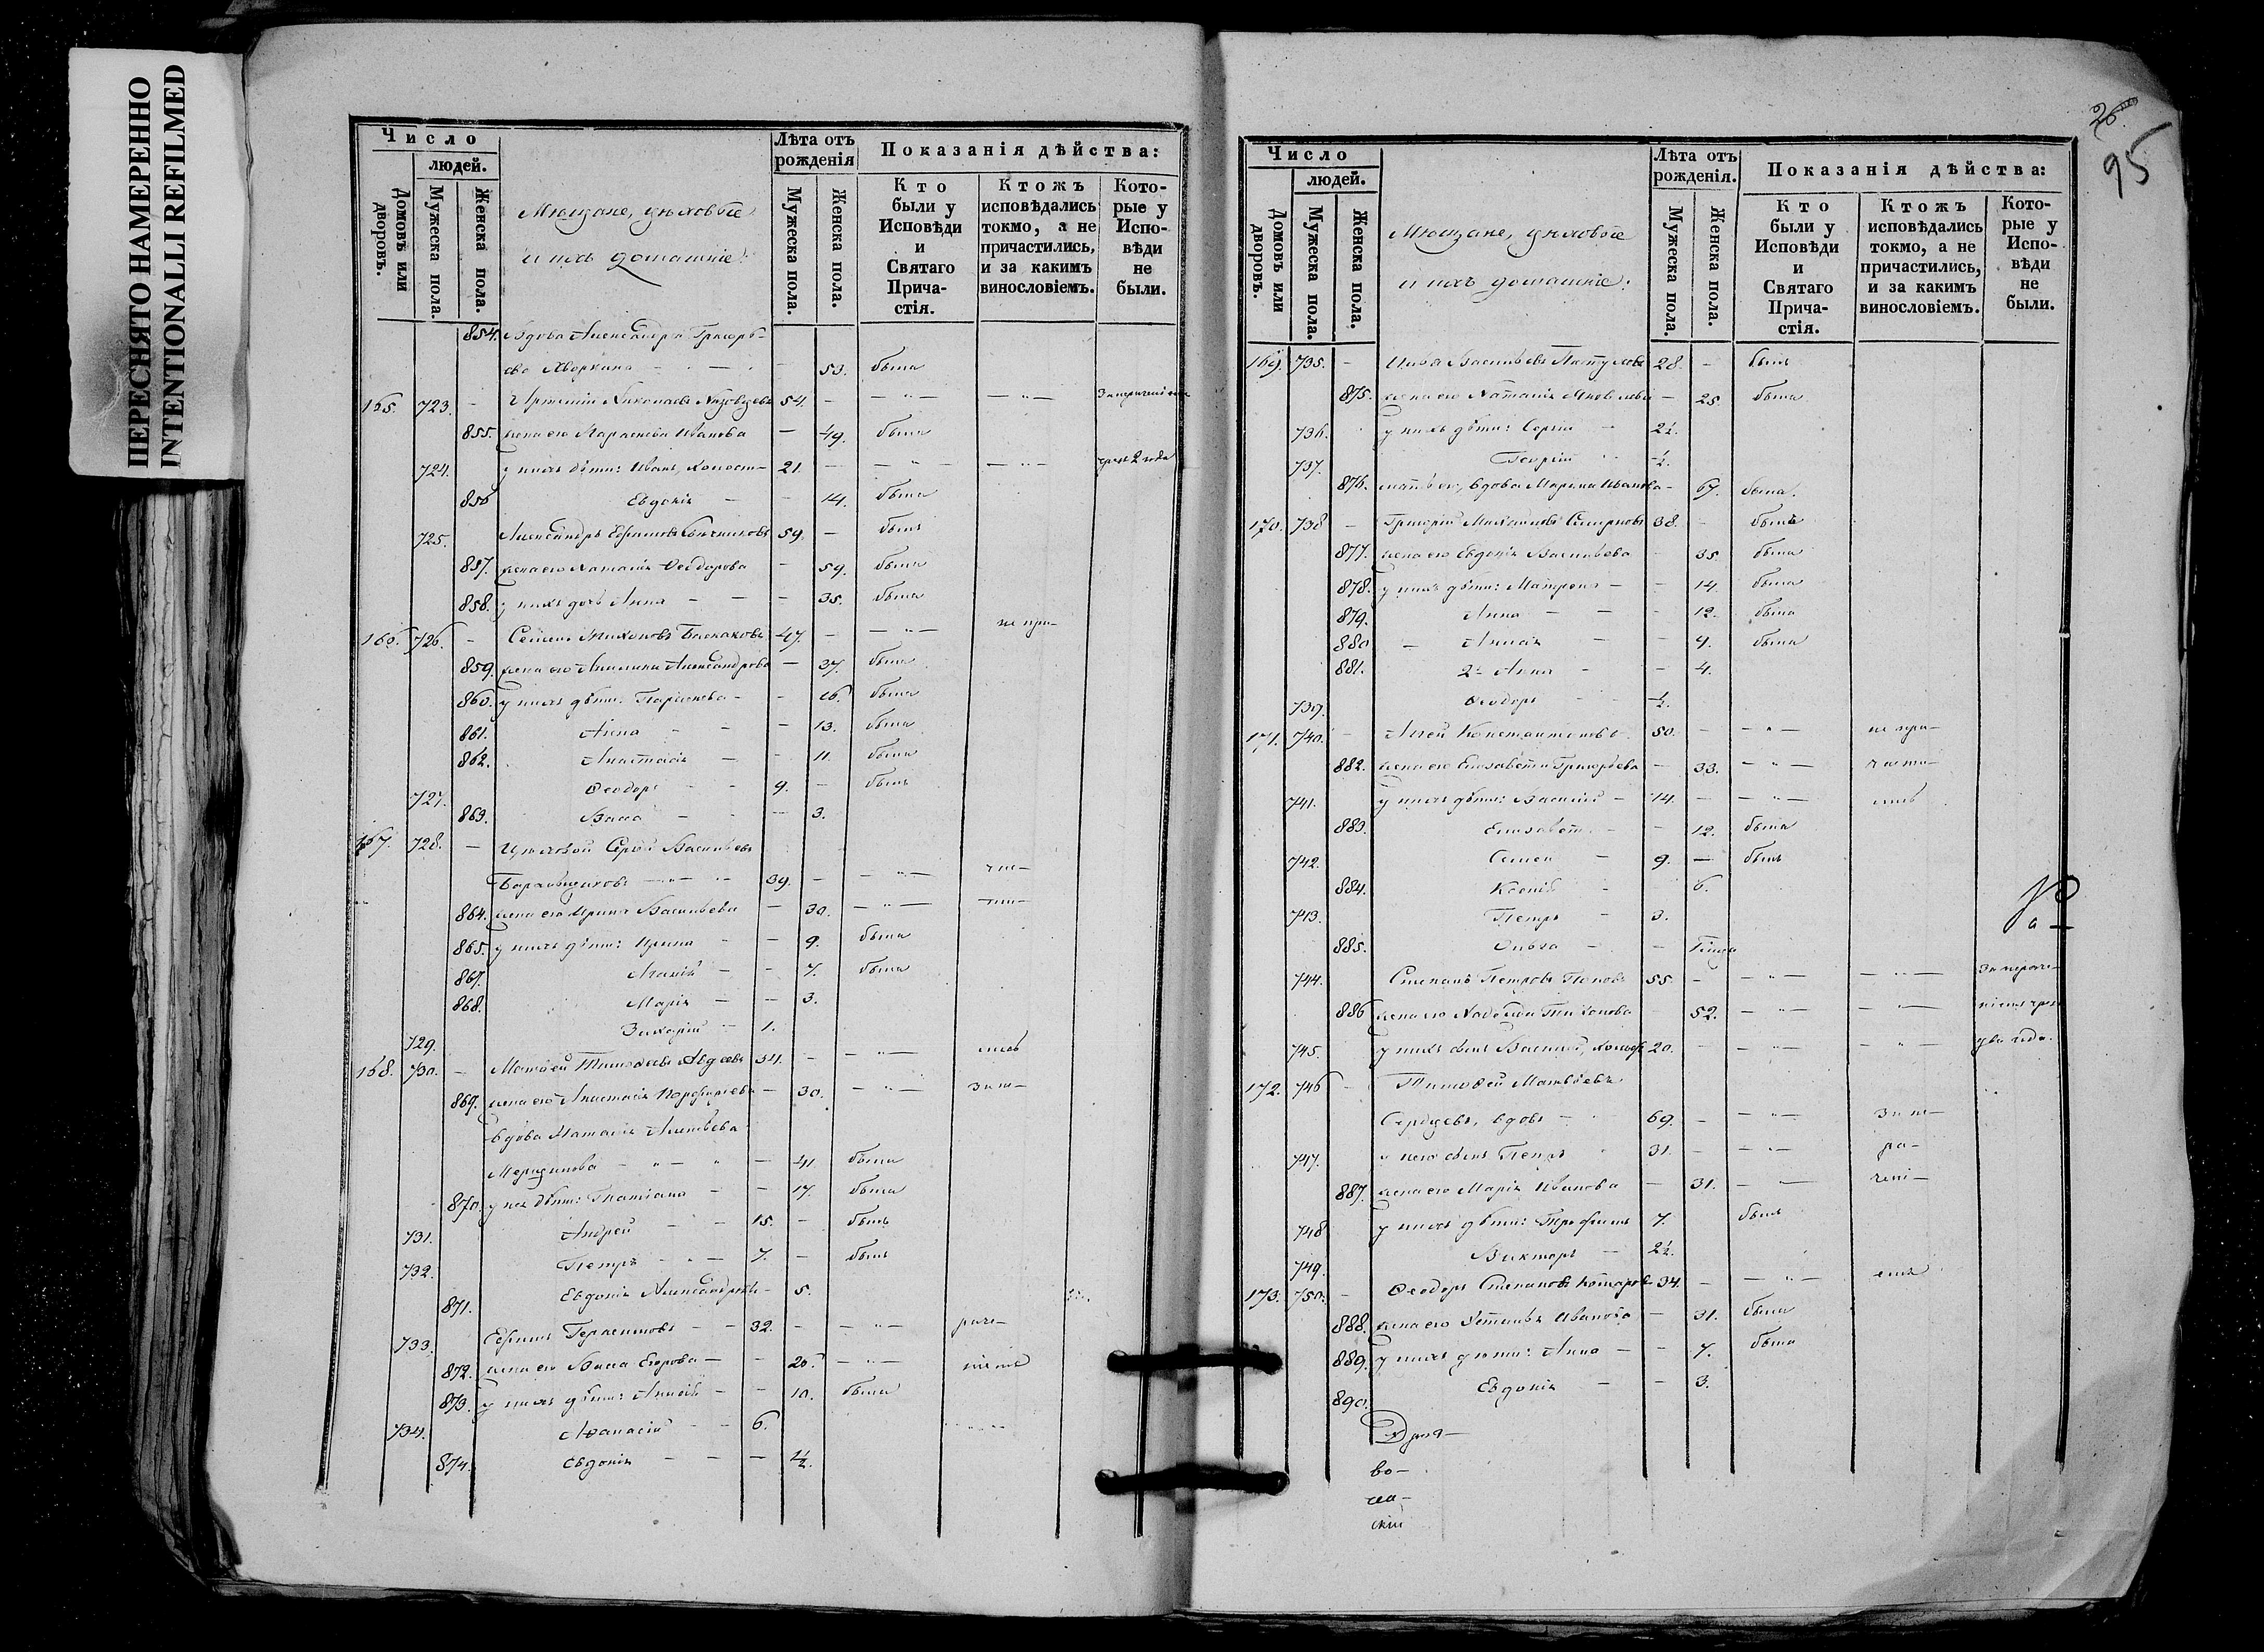 ПЕРЕСНЯТО НАМЕРЕННО
INTENTIONALLI REFILMED
Число
людей.
Домовъ или дворовъ.
Мужеска пола.
Женска пола.
Мещане, цеховые
и ихъ домашніе:
Лѣта отъ рожденія
Мужеска пола.
Женска пола.
Показанія дѣйства:
Кто были у Исповѣди и Святаго Прича-стія.
Ктожъ исповѣдались токмо, а не причастились, и за какимъ винословіемъ.
Кото-рые у Испо-вѣди не были.
854. Вдова Александра Григорь-
ева 53. была
165. 723. - Николаевъ 54. - - " - - " -
855. жена его Параскева Иванова - 49. была
724. у нихъ дѣти: Иванъ, холост- 21. - - " - - " - чрезъ 2 года
856 Евдокія - - 14. была
725. Александръ Ефимовъ 59. - былъ
857. жена его Наталія Ѳеодорова - 59. была
858. у нихъ дочь Анна - - - 35. была
166. 726. - Семенъ Баскаковъ 47. - - " - не при-
859. жена его Акилина Александрова - 37. была
860. у нихъ дѣти: Параскева - - 16. была
861. Анна - - - 13. была
862. Анастасія - - 11. была
727. Ѳеодоръ - - 9. - былъ
863. Васса - - - 3.
167. 728. - Цеховой Сергій Васильевъ
39. - - " - час-
864. жена его Ирина Васильева - 30. - " - ти-
865. у нихъ дѣти: Ирина - - 9. была
867. Агаѳія - - 7. была
868. Марія - - 3.
729. Захарій - 1.
168. 730. - Матѳей Тимоѳеевъ Авдеевъ 34. - - " - лись
869. жена его Анастасія Порфирьева - 30. - " - за не-
вдова Наталія
- " - " - 41. была
870. у нея дѣти: Татіана - - 17. была
731. Андрей - - 15. - былъ
732. Петръ - - 7. - былъ
871. Евдокія Александрова - 5.
733. Ефимъ Герасимовъ - - 32. - - " - раче-
872. жена его Васса Егорова - - 26. - " - ніемъ
873. у нихъ дѣти: Анисія - - 10. была
734. Аѳанасій - - 6.
874. Евдокія - - - 1/2.
26
95
Число
людей.
Домовъ или дворовъ.
Мужеска пола.
Женска пола.
Мещане, цеховые
и ихъ домашніе:
Лѣта отъ рожденія.
Мужеска пола.
Женска пола.
Показанія дѣйства:
Кто были у Исповѣди и Святаго Прича-стія.
Ктожъ исповѣдались токмо, а не причастились, и за какимъ винословіемъ.
Кото-рые у Испо-вѣди не были.
169. 735. - Васильевъ 28. - былъ
875. жена его Наталія Яковлева - 25. была
736. у нихъ дѣти: Сергій - 2½.
737. Георгій ½.
876. мать его, вдова Марина Иванова - 67. была.
170. 738 - Григорій Михайловъ Смирновъ 38. - былъ
877. жена его Евдокія Васильева - 35. была
878. у нихъ дѣти: Матрона - - 14. была
879. Анна - - - 12. была
880 - Анисія - - 9. была
881. 2я Анна - - 4.
739. Ѳеодоръ - ½.
171. 740. - Константиновъ 50. - - " - не при-
882. жена его Елизавета Григорьева - 33. - " - части-
741. у нихъ дѣти: Василій - 14. - - " - лись
883. Елизавета - - 12. была
742. Семенъ - 9. - былъ
884. Ксенія - - 6.
743. Петръ - 3.
885. Ольга - -
744. Степанъ Петровъ Поповъ 55. - - " - - " - за нераче-
886 жена его Надежда Тихонова 52. - " - - " - ніемъ чрезъ
745. у нихъ сынъ Василій, холостъ 20. - - " - - " - два года.
172. 746 - Тимоѳей Матвѣевъ
вдовъ - 69. - - " - за не-
747. у него сынъ Петръ 31. - - " - ра-
887. жена его Марія Иванова - 31. - " - чені-
748 у нихъ дѣти: Трофимъ 7. былъ
749. Викторъ - 2½.
173. 750. - Ѳеодоръ Степановъ 34. - - " - емъ
888. жена его Устинья Иванова - 31. была
889. у нихъ дѣти: Анна - - 7. была
890. Евдокія - - 3.
во-
скій